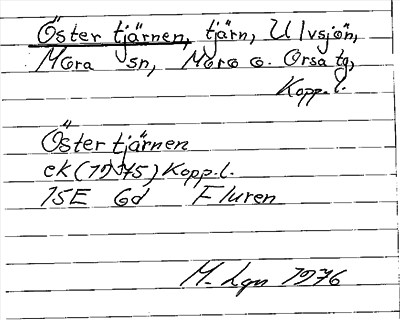 Östertjärnen, tjärn, Ulvsjön,
Mora sn, Mora o. Orsa tg,
Kopp.l.
Östertjärnen
ek (1975) Kopp.l.
15E 6d Fluren
M. Lgn 1976